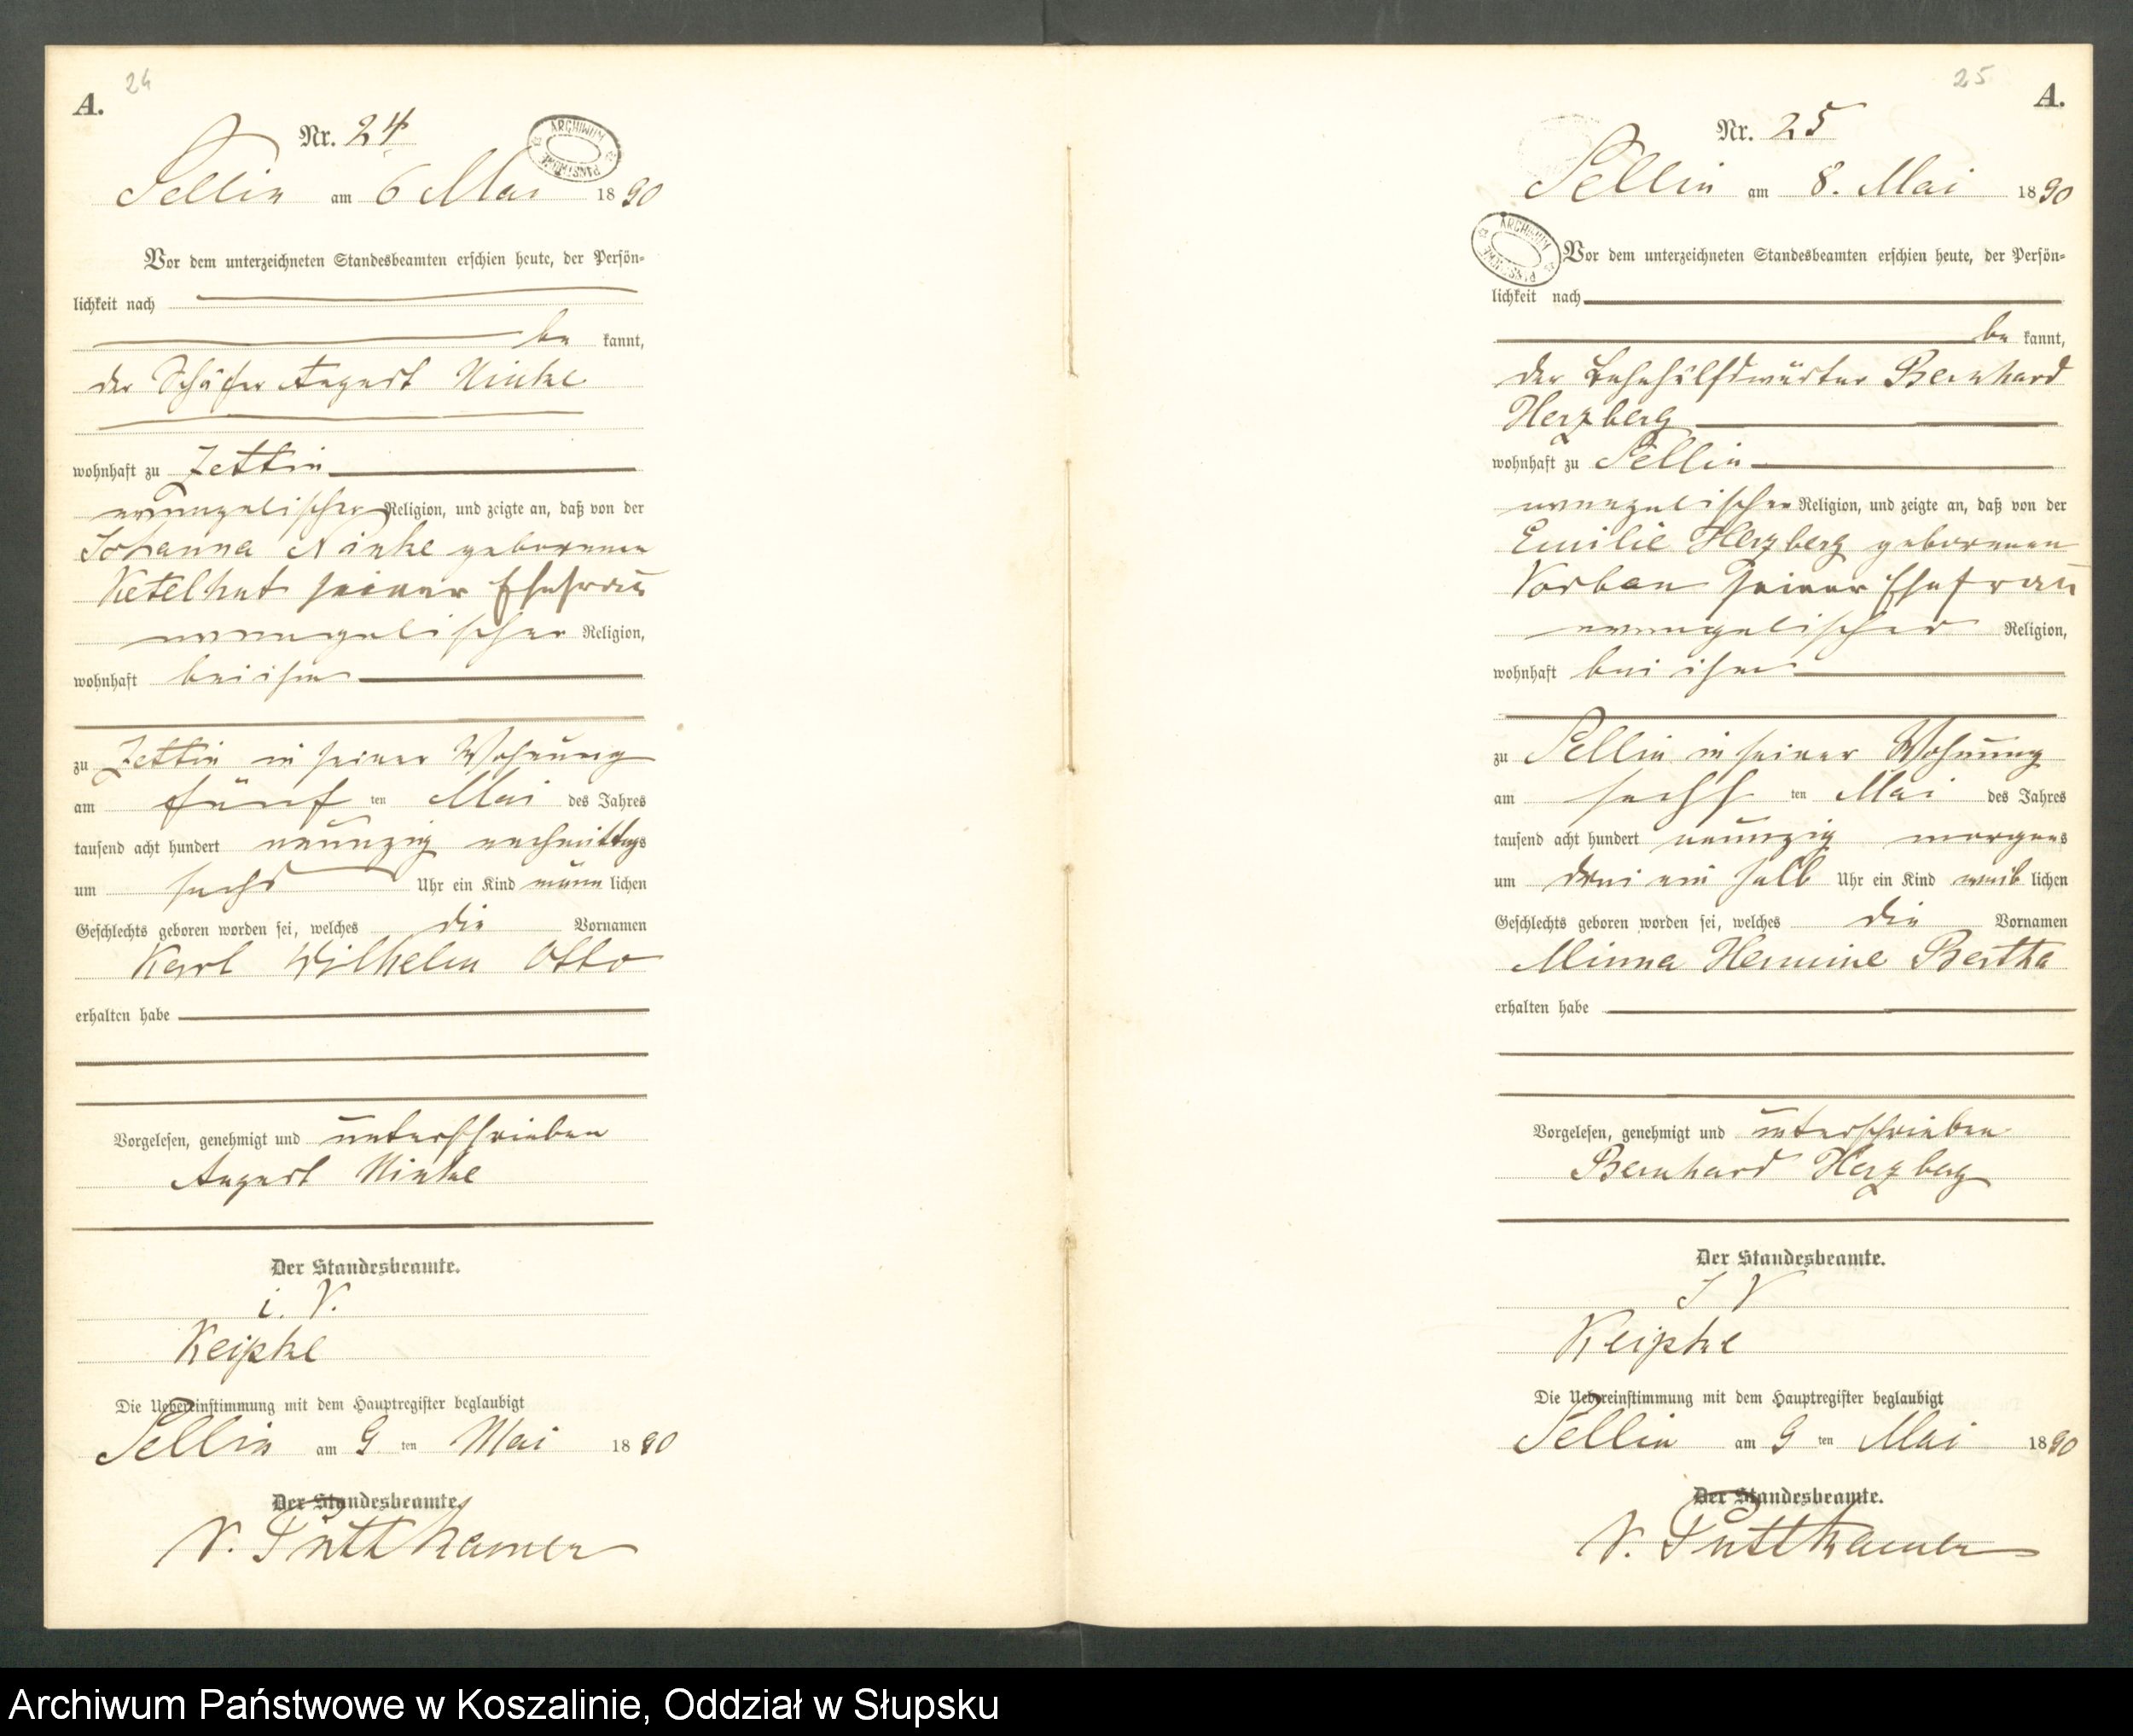 24
A.
Nr. 24
ARCHIWUM PAŃSTWOWE
Sellin am 6 Mai 1890
Vor dem unterzeichneten Standesbeamten erschien heute, der Persön-
lichkeit nach
be kannt,
der Schäfer August Ninke
wohnhaft zu Zettin
evangelischer Religion, und zeigte an, daß von der
Johanna Ninke geborenen
Ketelhut seiner Ehefrau
evangelischer Religion,
wohnhaft bei ihm
zu Zettin in seiner Wohnung
am fünf ten Mai des Jahres
tausend acht hundert neunzig nachmittags
um sechs Uhr ein Kind männ lichen
Geschlechts geboren worden sei, welches die Vornamen
Karl Wilhelm Otto
erhalten habe
Vorgelesen, genehmigt und unterschrieben
August Ninke
Der Standesbeamte.
i. V.
Keipke
Die Uebereinstimmung mit dem Hauptregister beglaubigt
Sellin am 9 ten Mai 1890
Der Standesbeamte.
v. Puttkamer
25
A.
Nr. 25
Sellin am 8. Mai 1890
ARCHIWUM PAŃSTWOWE
Vor dem unterzeichneten Standesbeamten erschien heute, der Persön-
lichkeit nach
be kannt,
der Bahnhülfswärter Bernhard
Herzberg
wohnhaft zu Sellin
evangelischer Religion, und zeigte an, daß von der
Emilie Herzberg geborenen
Korban seiner Ehefrau
evangelischer Religion,
wohnhaft bei ihm
zu Sellin in seiner Wohnung
am sechs ten Mai des Jahres
tausend acht hundert neunzig morgens
um drei ein halb Uhr ein Kind weib lichen
Geschlechts geboren worden sei, welches die Vornamen
Minna Hermine Bertha
erhalten habe
Vorgelesen, genehmigt und unterschrieben
Bernhard Herzberg
Der Standesbeamte.
I V
Keipke
Die Uebereinstimmung mit dem Hauptregister beglaubigt
Sellin am 9 ten Mai 1890
Der Standesbeamte.
v. Puttkamer
Archiwum Państwowe w Koszalinie, Oddział w Słupsku